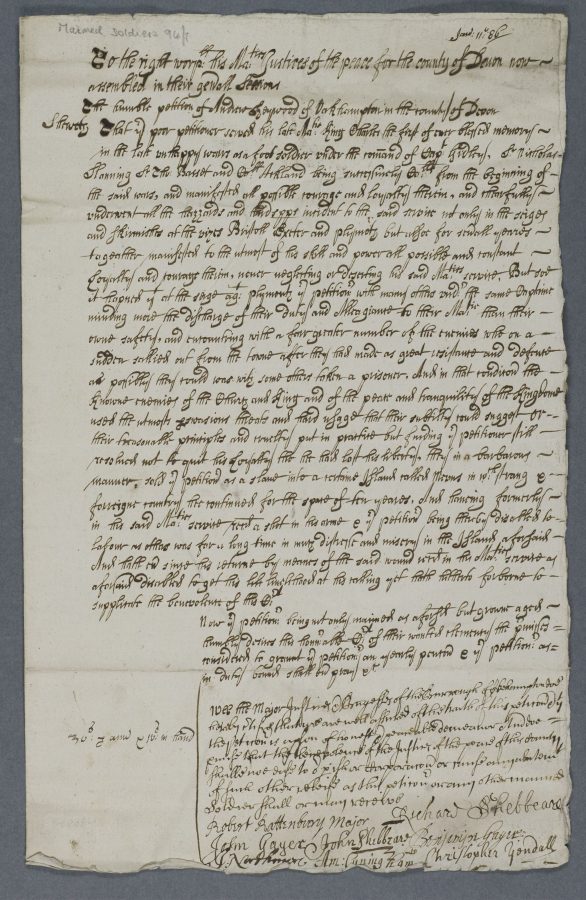 Maimed Soldiers 96/1
To the right wor:ll his Ma:ties Justices of the peace for the county of Devon now
assembled in their genall Sessions
The humble petition of Andrew Haywood of Ockhampton in the countey of Devon
Sheweth That yr poor petitioner served his late Matie King Charles the first of ever blessed memorey
in the late unhappy warrs as a foot soldier under the command of Capt Hidley, Sr Nicholas
Slaning Sr and Coll Ackland being successively from the beginning of
the said warrs, and manifested all possible courage and Loyalty therein, and chearfully
underwent all the hazzards and hardspps incident to the said service not only in the seiges
and skirmishes at the Bristoll Exeter and plymoth but allsoe for severall yeares
togeather manifested to the utmost of his skill and power all possible and constant
Loyalty and courage therein, never neglecting or deserting his said Maties service, But soe
it hapned yt at the seige agt plymoth yr petitioner with many others undr the same Captaine
minding more the discharge of their duty and Alleagiance to their Matie than their
owne safety, and encountring with a far greater number of the enemies who on a
sudden sallied out from the towne after they had made as great resistance and defence
as possibly they could was with some others taken a prisoner. And in that condition the
knowne enemies of the Church and King and of the peace and tranquility of the Kingdome
used the utmost threats and hard usage that their subtilty could suggest or
their treasonable principles and cruelty put in practice but finding yr petitioner still
resolved not to quit his Loyalty tho he had lost his liberty they in a barbarous
manner sold yr petitioner as a slave into a certaine Island called in wch strang &
forreigne country he continued for the space of ten yeares. And haveing formerly
in his said Maties service a shot in his arme & yr petitioner being thereby disabled to
labour as others was for a long time in much distress and misery in the Island aforsaid
And hath since his returne by meanes of the said wound in his Maties service as
aforsaid disabled to get his livelihood at his calling yet hath hitherto forborne to
supplicate the benevolence of this
Now yr petitioner being not only maymed as aforsd but growne aged
humbly desires this honrable of their wonted clemency the pmises
considered to graunt yr petitioner an yearly pention & yr petitioner as
in duty bound shall ever pray &c
Wee the Major Justices & Burgesses of the Borough of Ockhampton doe
hereby certify that wee are well assured of the truth of this petition &
the petitioner is a pson of honest peaceable demeanor
that the benevolence of the Justices of the peace of this County
shall
of such other releife as this petitionr or any other maimed
Soldier shall or may receive
Richard Shebbeare
Robert Rattenbury Major
John Gayer John Shibbeare Benjamyn Gayer
Christopher Yendall